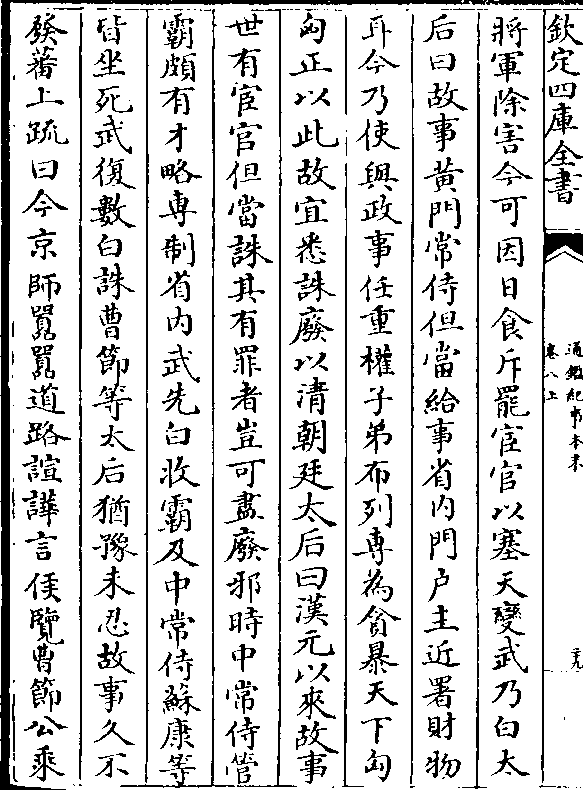 欽定四庫全書
通鑑紀事本末
卷八上
三九
將軍除害今可因日食斥罷宦官以塞天變武乃白太
后曰故事黃門常侍但當給事省内門户主近署財物
耳今乃使與政事任重權子弟布列專為貪暴天下匈
匈正以此故宜悉誅廢以清朝廷太后曰漢元以來故事
世有宦官但當誅其有罪者豈可盡廢邪時中常侍管
霸頗有才略専制省内武先白收霸及中常侍蘇康等
皆坐死武復數白誅曹節等太后猶豫未忍故事久不
發蕃上疏曰今京師嚚嚚道路諠譁言侯覽曹節公乘